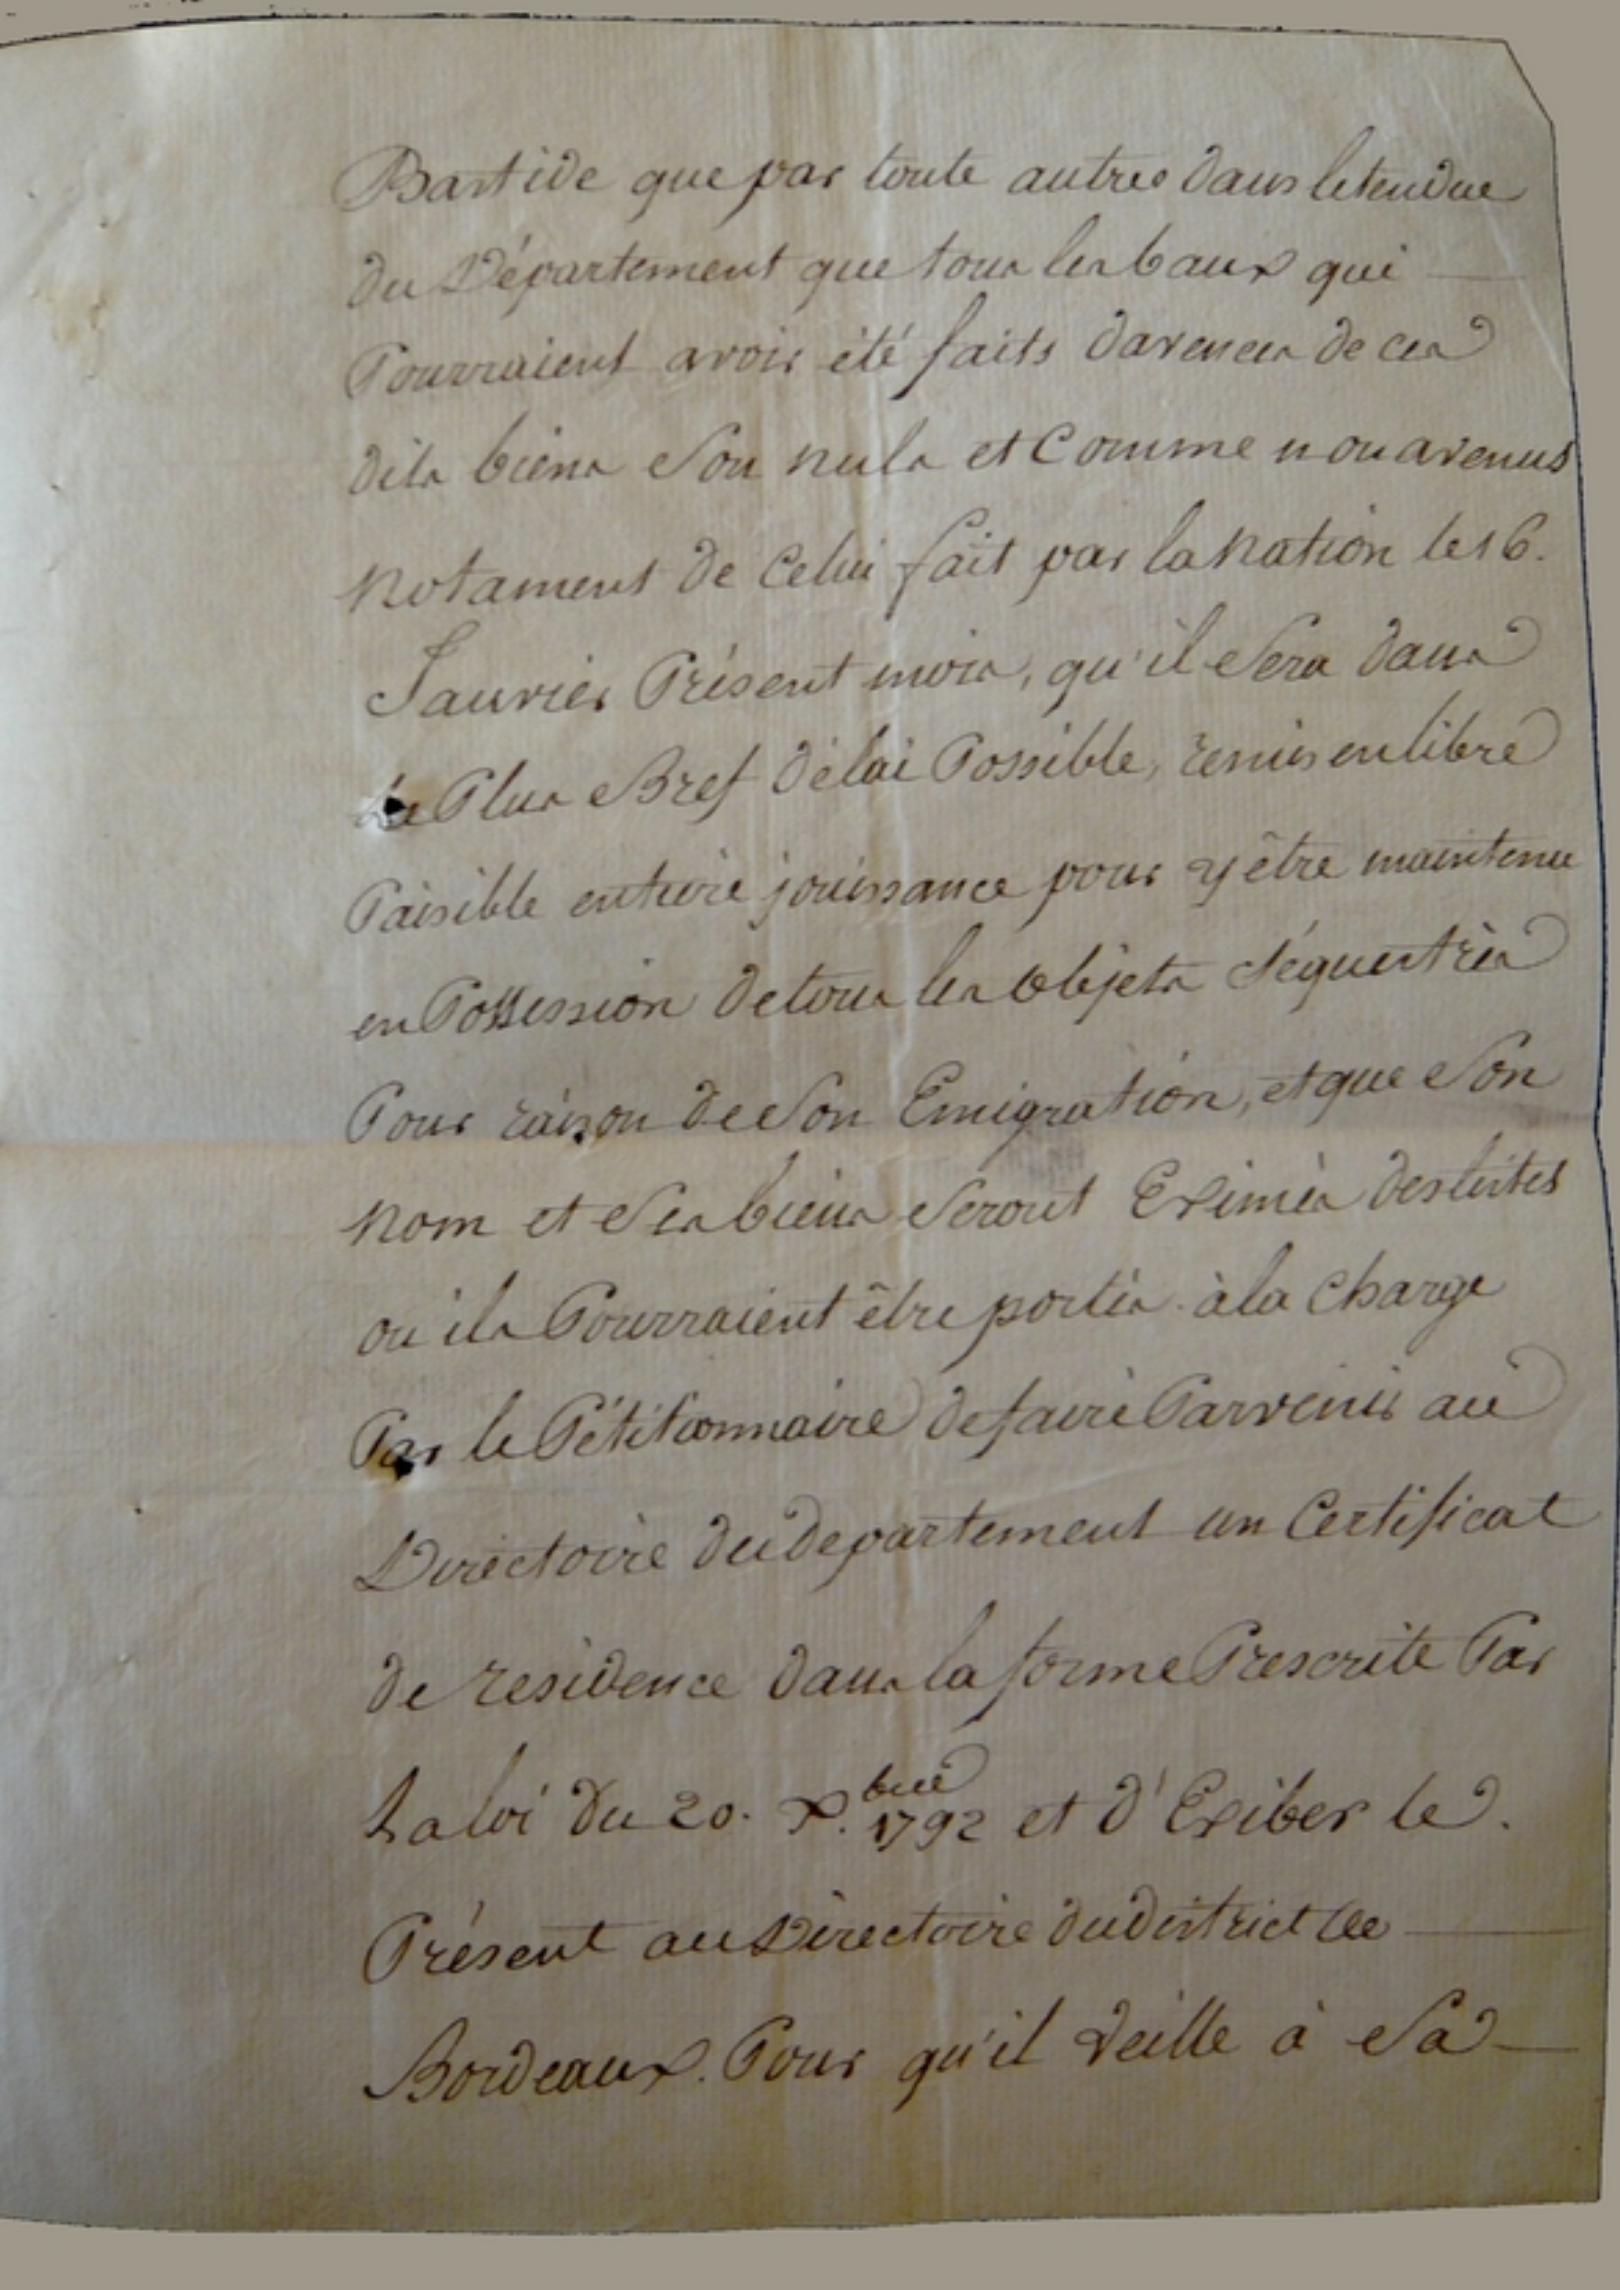 Bastide que par toute autres dans letendue
du Département que tous les baux qui
Pourraient avoir été faits davences de ces
dits biens Son nuls et Comme non avenus
Notament de Celui fait par la Nation le 16.
Janvier Présent mois, qu'il Sera dans
Le Plus Bref Délai Possible, remis en libre
Paisible entiere jouissance pour y être maintenu
en Possession de tous les Objets Séquestrés
Pour raison de Son Emigration, et que Son
Nom et Ses biens Seront Eximés des listes
ou ils Pourraient être portés à la Charge
Par le Pétitionnaire de faire Parvenir au
Directoire du departement un Certificat
de residence dans la forme Prescrite Par
La loi du 20. X.bre 1792 et d'Exiber le
Présent au Directoire du district de
Bordeaux. Pour qu'il Veille à Sa